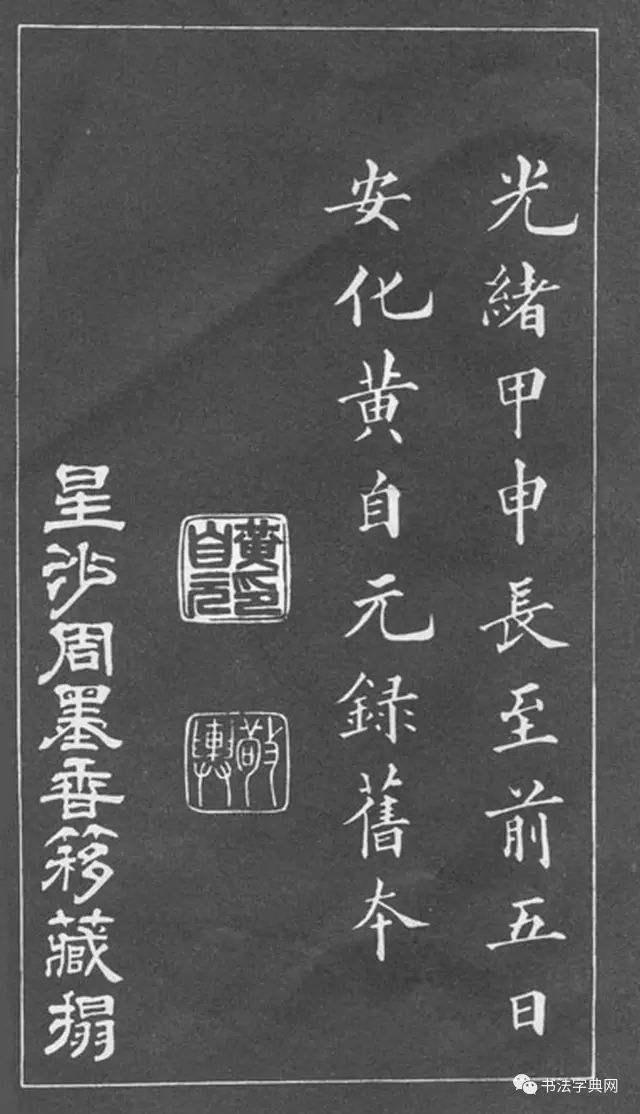 光緒甲申長至前五日
安化黄自元録舊本
黄自元印
敬輿
星沙周墨香簃藏搨
书法字典网